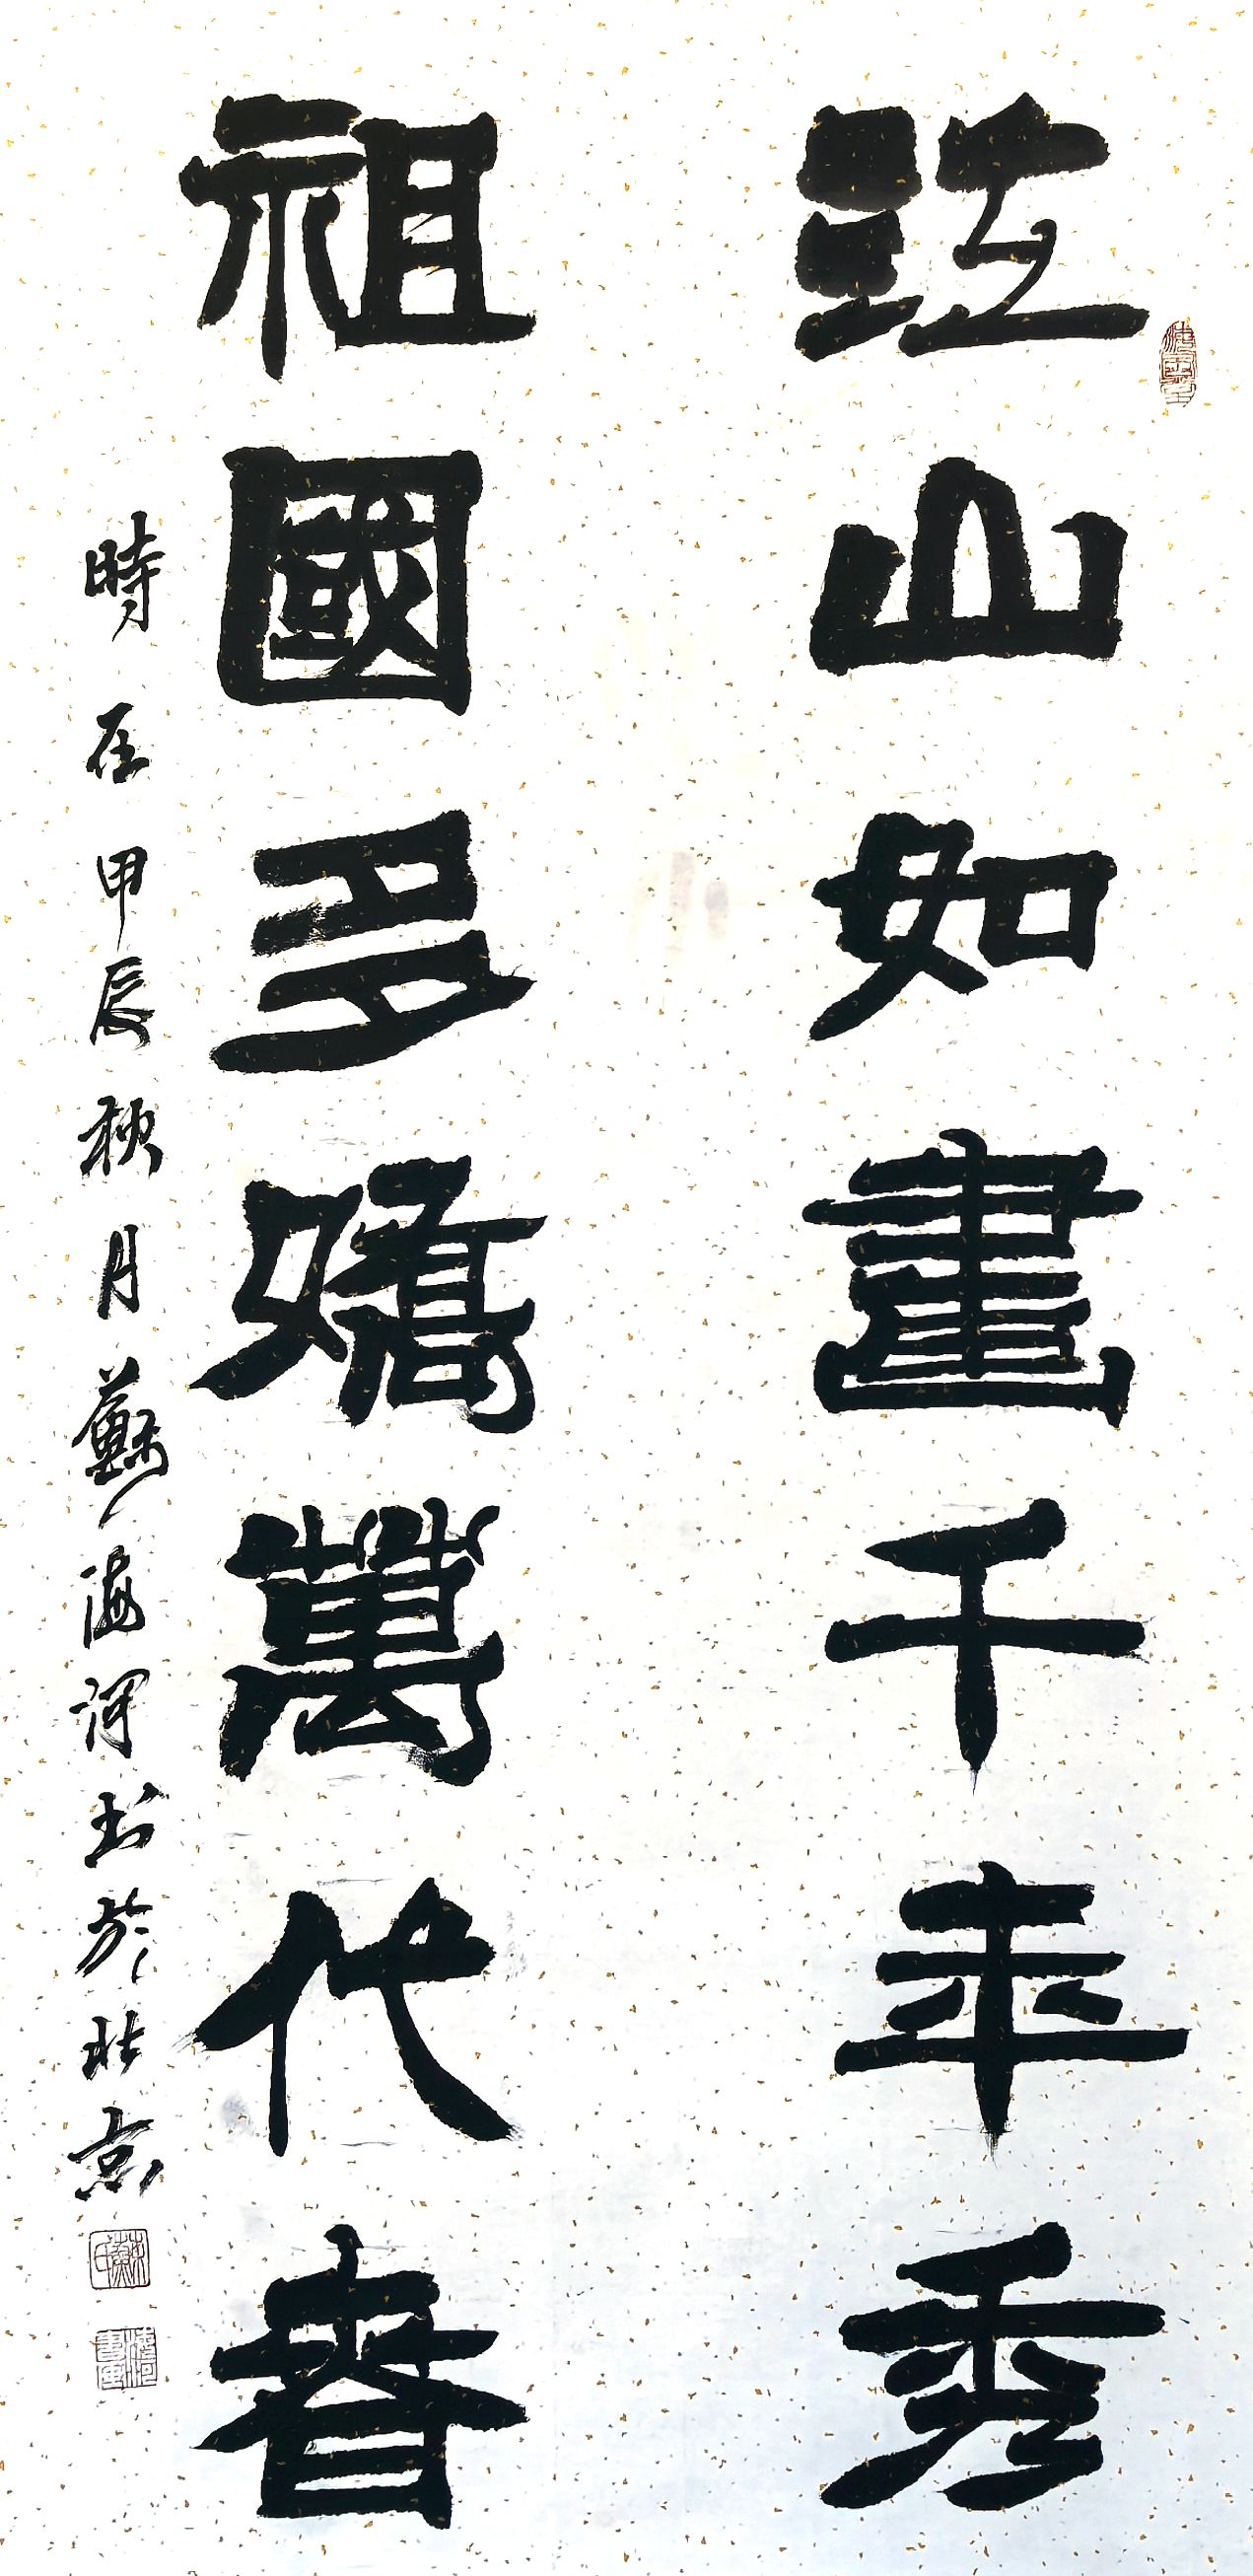 江山如畫千年秀
祖國多嬌萬代春
時在甲辰秋月蘇海河書於北京